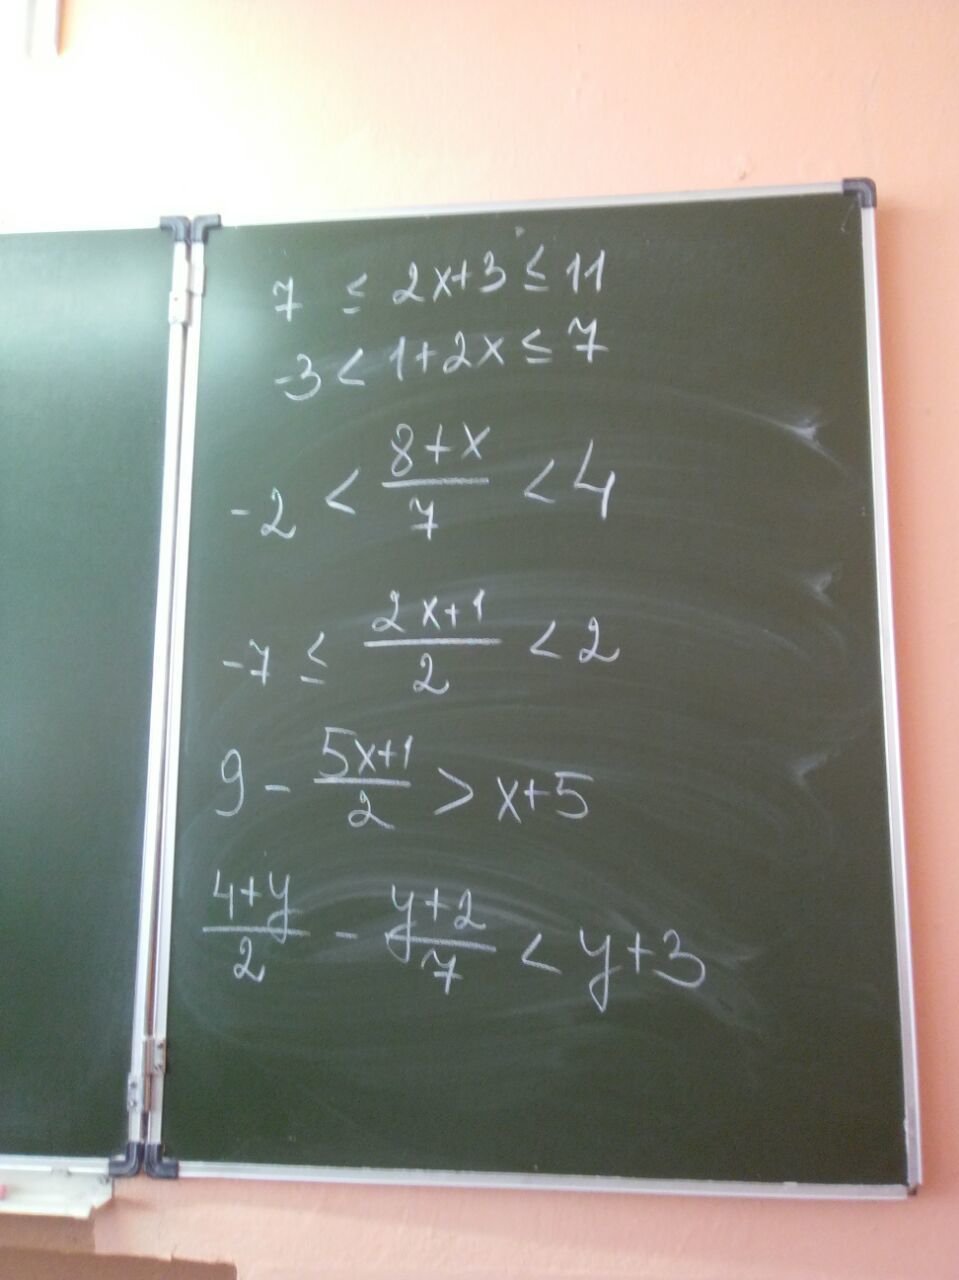 7 ≤ 2x+3 ≤ 11
-3 < 1+2x ≤ 7
-2 < (8+x)/7 < 4
-7 ≤ (2x+1)/2 < 2
9 - (5x+1)/2 > x+5
(4+y)/2 - (y+2)/7 < y+3